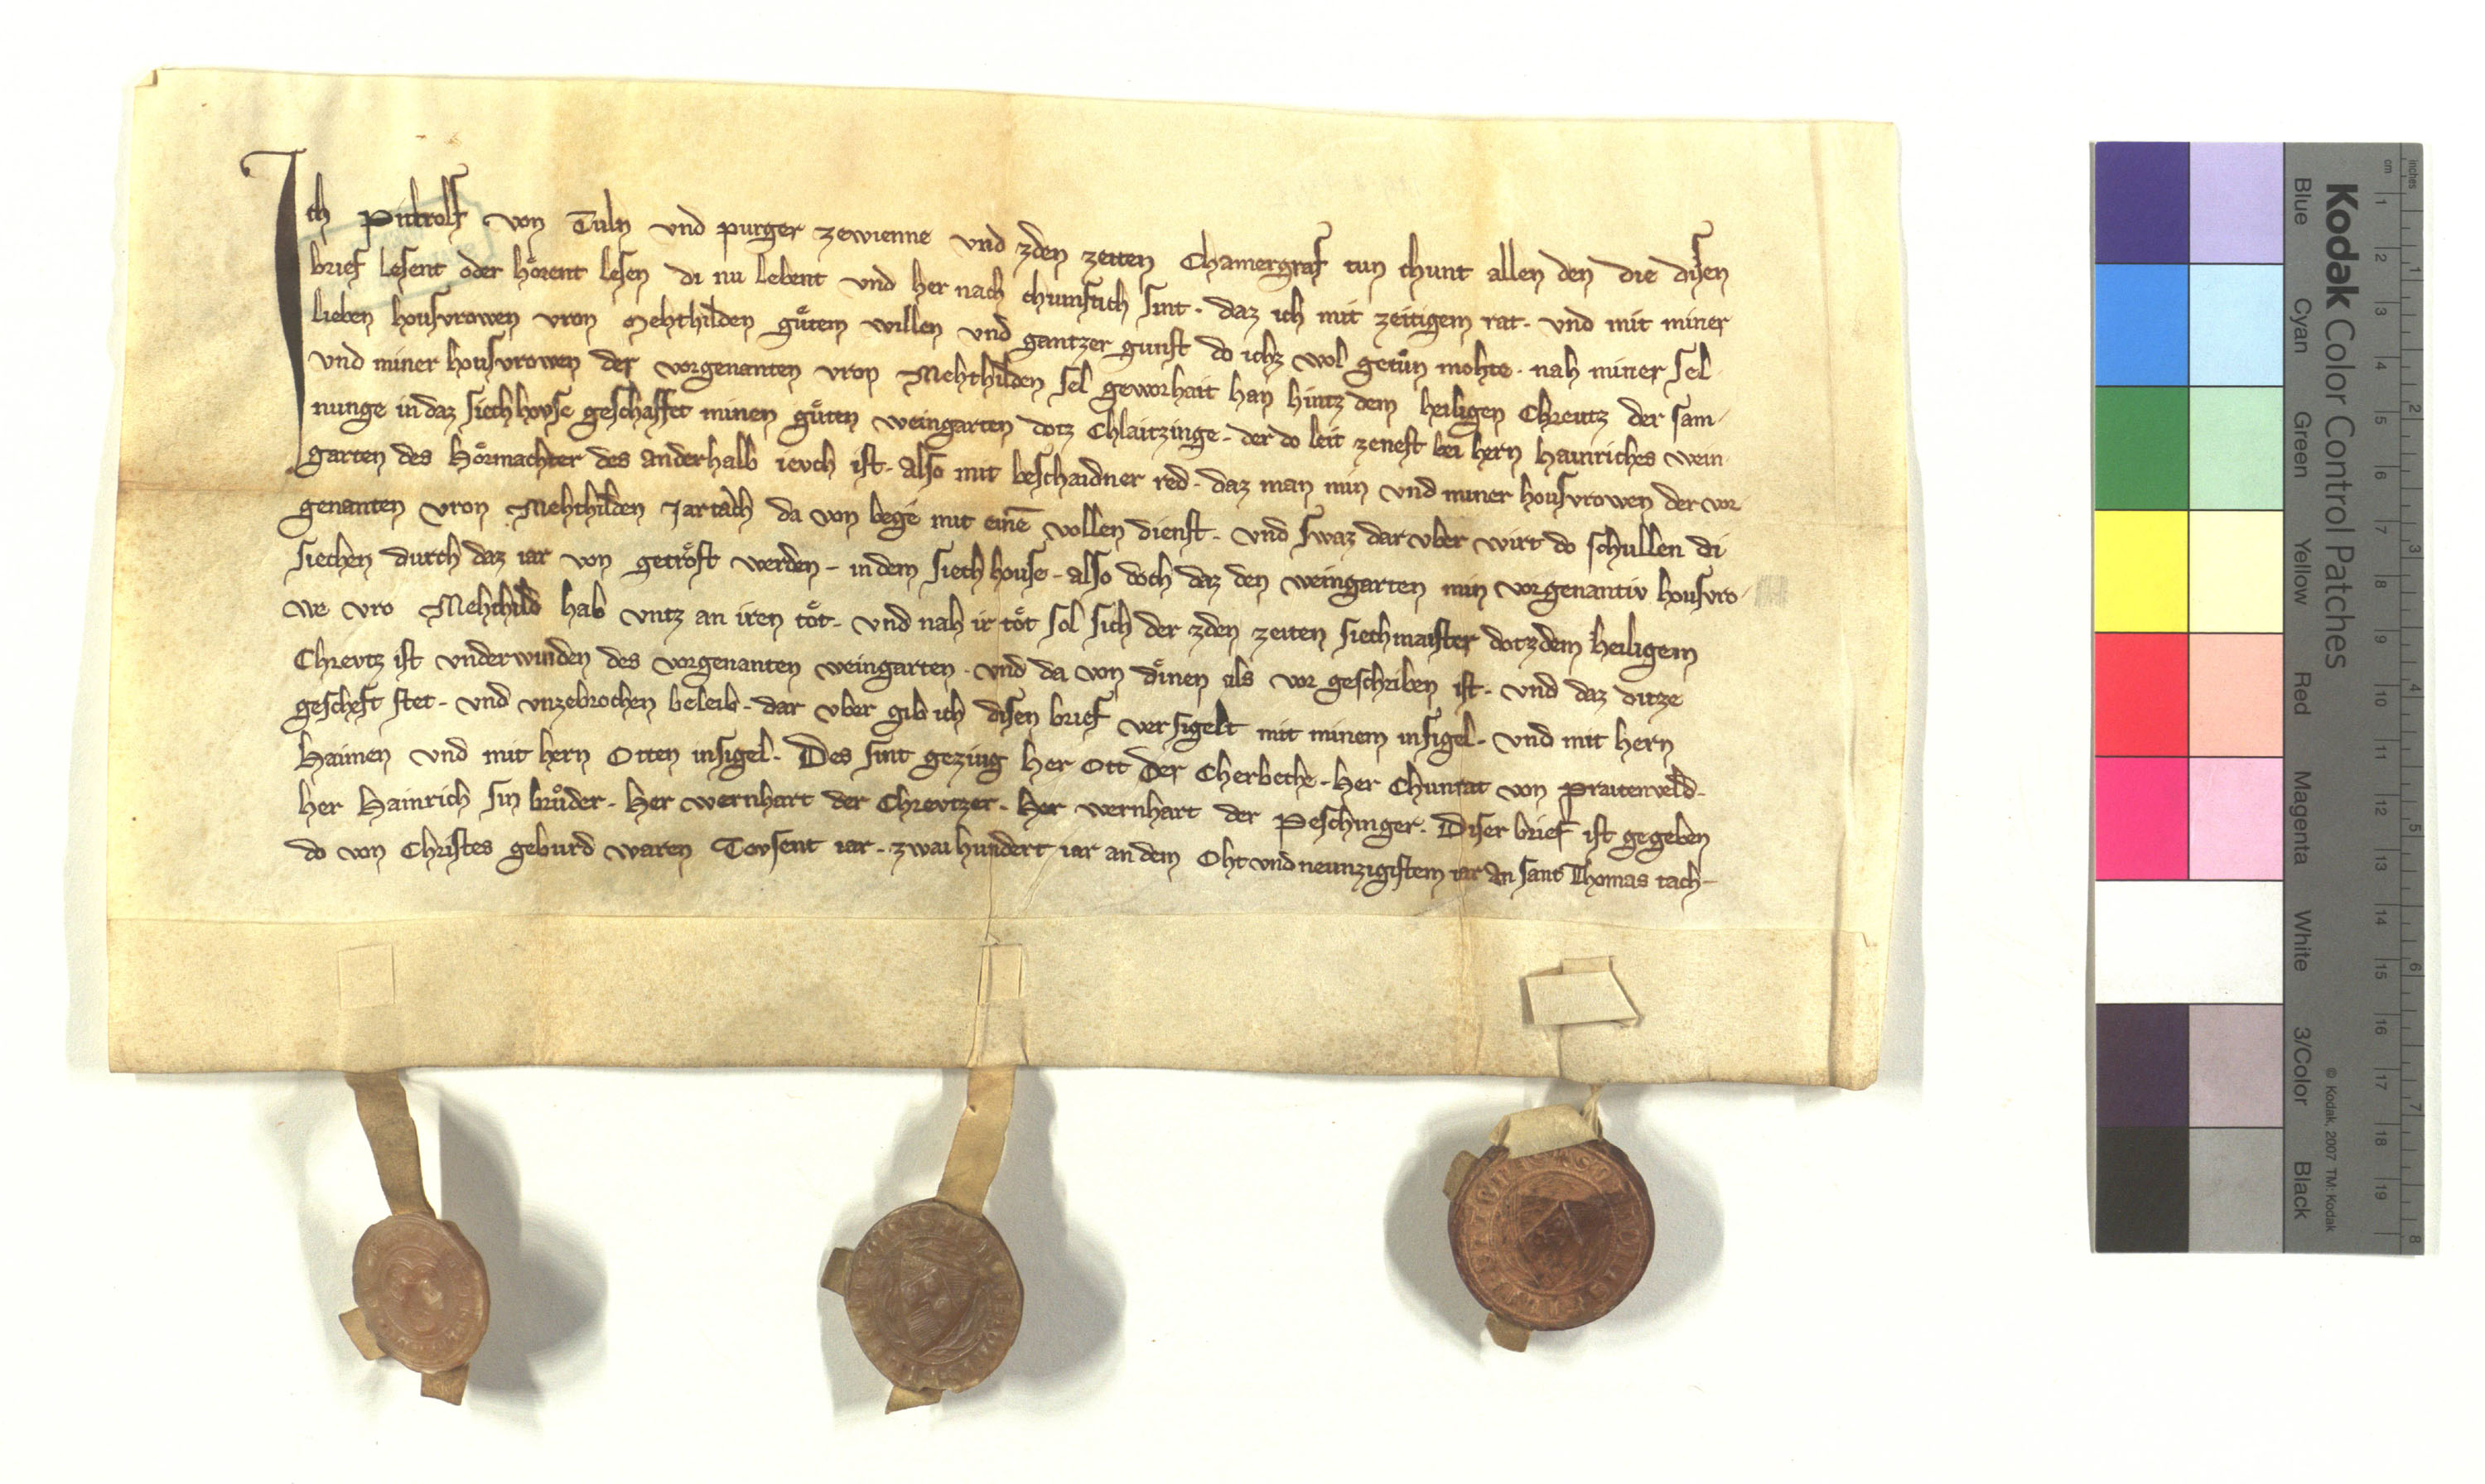 Ich Pitrolf von Tuln vnd purger zewienne vnd zden zeiten Chamergraf tun chunt allen den die disen
brief lesent oder hoͤrent lesen di nu lebent vnd her nach chumftich sint · daz ich mit zeitigem rat · vnd mit miner
lieben housvrowen vron Mehthilden guͤtem willen vnd gantzer gunst do ichz wol getuͦn mohte · nah miner sel
vnd miner housvrowen der vorgenanten vron Mehthilden sel geworhait han hintz dem heiligen Chreutz der sam-
nunge in daz siechhovse geschaffet minen guͤten weingarten dotz Chlaitzinge · der do leit zenest bei hern Hainriches wein-
garten des Hoͤrmachter des anderhalb ievch ist · also mit beschaidner red · daz man min vnd miner housvrowen der vor-
genanten vron Mehthilden Jartach da von bege mit einē vollen dienst · vnd swaz dar vber wirt do schullen di
siechen durch daz iar von getroͤst werden · in dem siech house · also doch daz den weingarten min vorgenantiv housvro-
we vro Mehthild hab vntz an iren toͤt · vnd nah ir toͤt sol sich der zden zeiten siechmaister dotzdem heiligem
Chrevtz ist vnderwinden des vorgenanten weingarten · vnd da von dinen als vor geschriben ist · vnd daz ditze
gescheft stet · vnd vnzebrochen beleib · dar vber gib ich disen brief versigelt mit minem insigel · vnd mit hern
Haimen vnd mit hern Otten insigel · Des sint gezivg Her Ott Der Cherbeche · Her Chunrat von praitenveld ·
her Hainrich sin bruͦder · Her wernhart der Chrevtzer · Her wernhart der Peschinger · Diser brief ist gegeben
do von Christes geburd waren Tovsent iar · zwaihundert iar an dem Oht vnd neunzigistem iar An sant Thomas tach ·
Kodak Color Control Patches
Blue Cyan Green Yellow Red Magenta White 3/Color Black
© Kodak, 2007 TM: Kodak
cm 1 2 3 4 5 6 7 8 9 10 11 12 13 14 15 16 17 18 19
inches 1 2 3 4 5 6 7 8